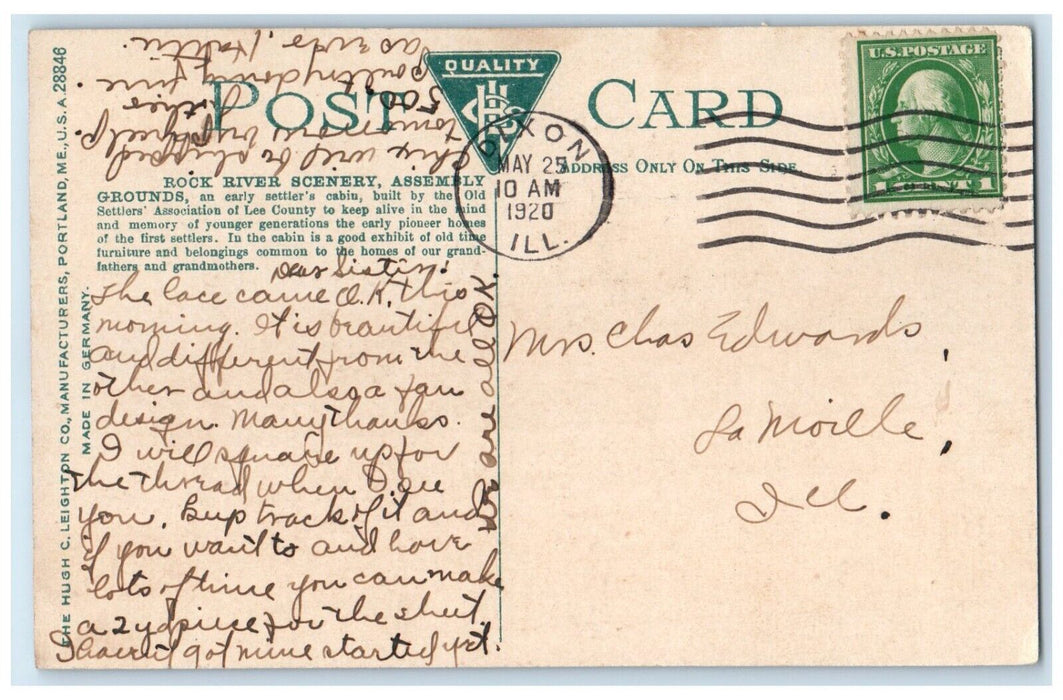 POST CARD
QUALITY
HCL Co
ADDRESS ONLY ON THIS SIDE
U.S. POSTAGE
1 CENT 1
DIXON
MAY 25
10 AM
1920
ILL.
THE HUGH C. LEIGHTON CO., MANUFACTURERS, PORTLAND, ME., U.S.A. 28846
MADE IN GERMANY.
ROCK RIVER SCENERY, ASSEMBLY
GROUNDS, an early settler's cabin, built by the Old
Settlers' Association of Lee County to keep alive in the mind
and memory of younger generations the early pioneer homes
of the first settlers. In the cabin is a good exhibit of old time
furniture and belongings common to the homes of our grand-
fathers and grandmothers.
Dear Sister:
The lace came O.K. this
morning. It is beautiful
and different from the
other and also a fan
design. Many thanks.
I will square up for
the thread when I see
you. Keep track of it and
if you want to and have
lots of time you can make
a 2 yd piece for the sheet.
I haven't got mine started yet.
We are all OK.
chix will be shipped
tomorrow by
500
Poultry doing fine
as ever, Hattie.
Mrs. Chas Edwards,
La Moille,
Ill.